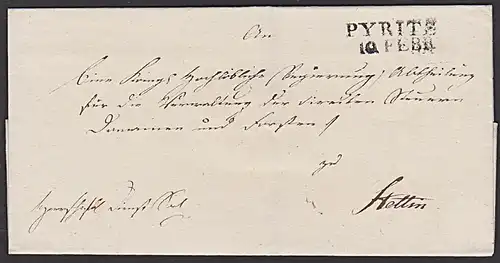 PYRITZ
10 FEBR
An
Eine Königl. Hochlöbliche Regierung, Abtheilung
für die Verwaltung der direkten Steuern
Domainen und Forsten
zu
Stettin
Herrschaftl. Dienst Sache